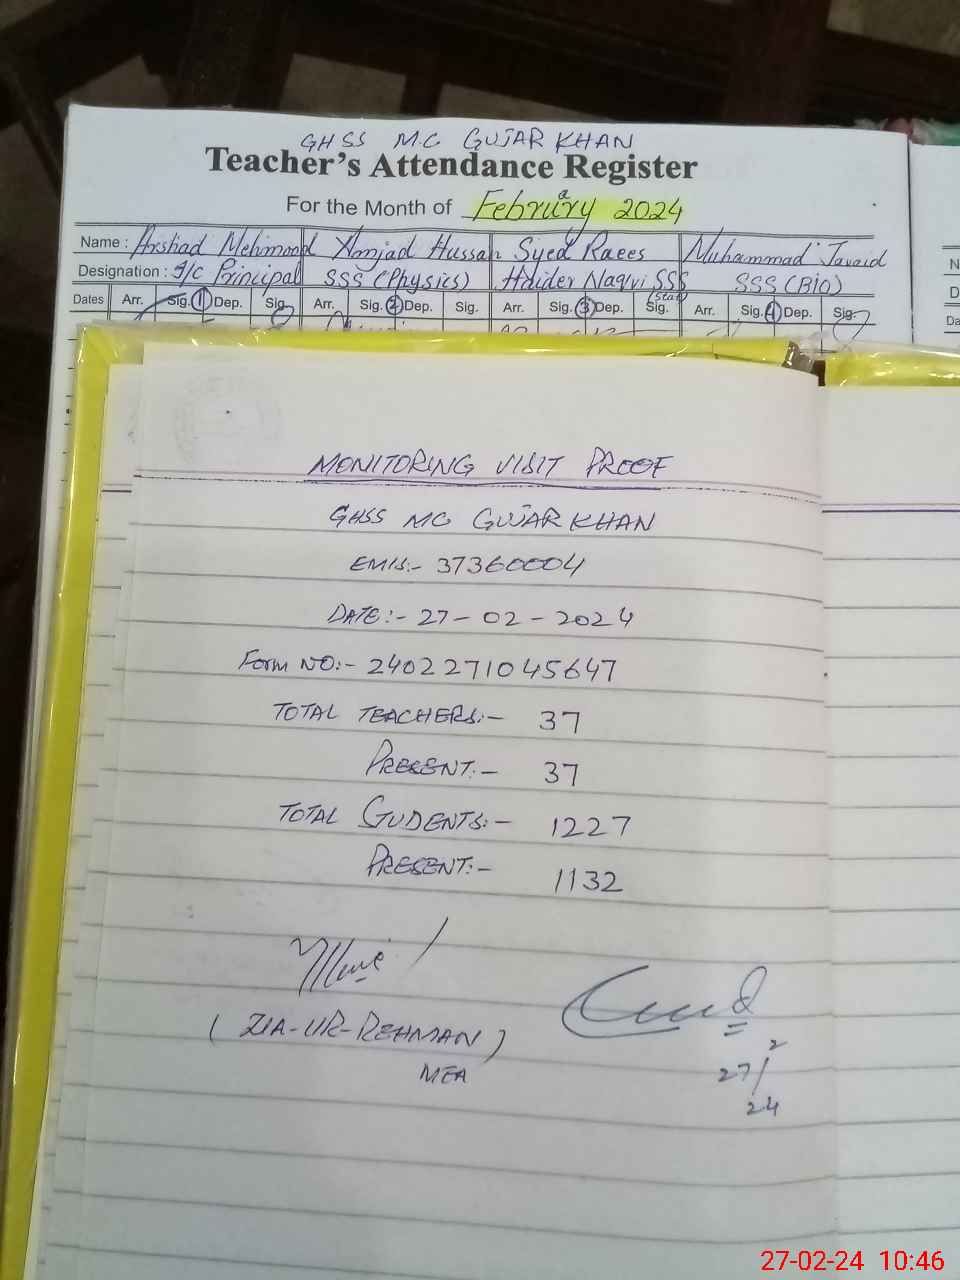 GHSS MC GUJAR KHAN
Teacher's Attendance Register
For the Month of February 2024
Name : Arshad Mehmood Amjad Hussain Syed Raees Muhammad Javaid
Designation : I/C Principal SSS (Physics) Haider Naqvi SSS SSS (Bio)
(Stat)
Dates Arr. Sig. 1 Dep. Sig. Arr. Sig. 2 Dep. Sig. Arr. Sig. 3 Dep. Sig. Arr. Sig. 4 Dep. Sig.
MONITORING VISIT PROOF
GHSS MC GUJAR KHAN
EMIS:- 37360004
DATE:- 27-02-2024
Form NO:- 2402271045647
TOTAL TEACHERS:- 37
PRESENT:- 37
TOTAL STUDENTS:- 1227
PRESENT:- 1132
(ZIA-UR-REHMAN)
MEA
27/2
24
27-02-24 10:46